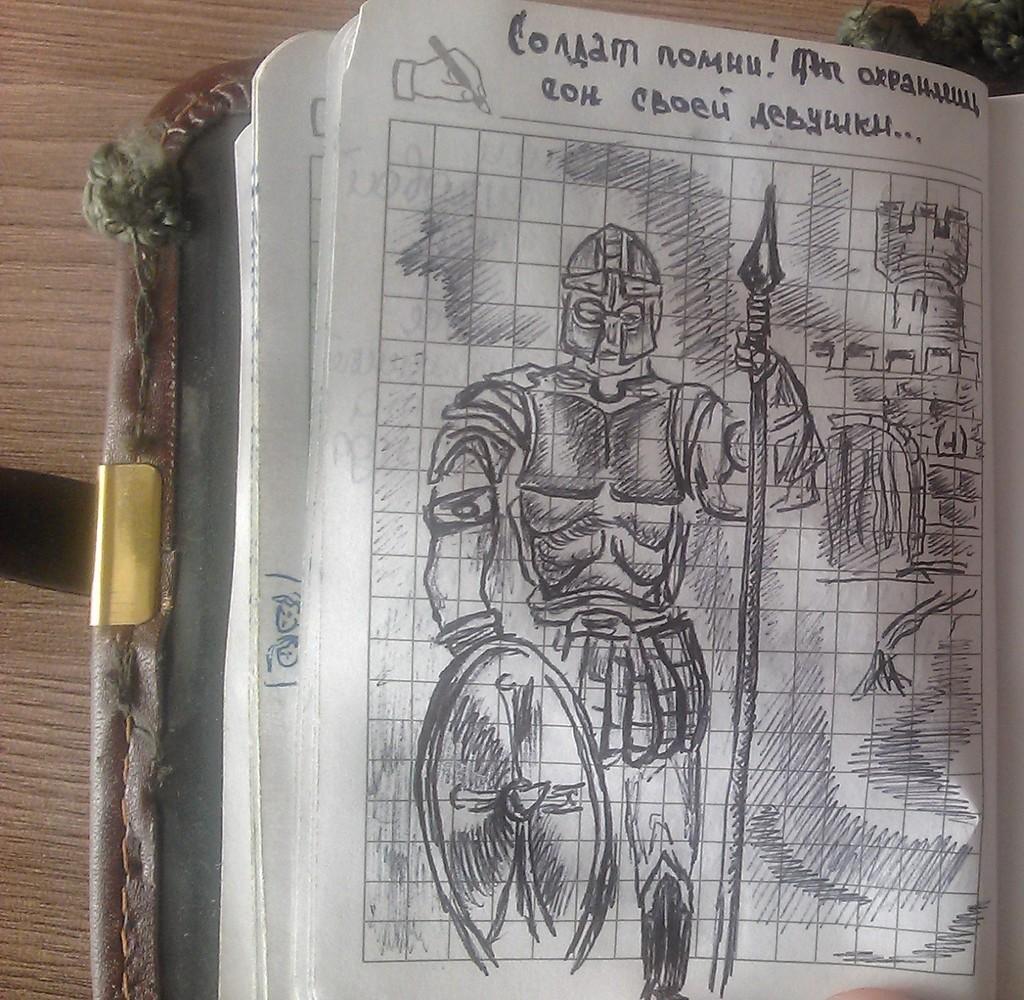 Солдат помни! Ты охраняешь
сон своей девушки...